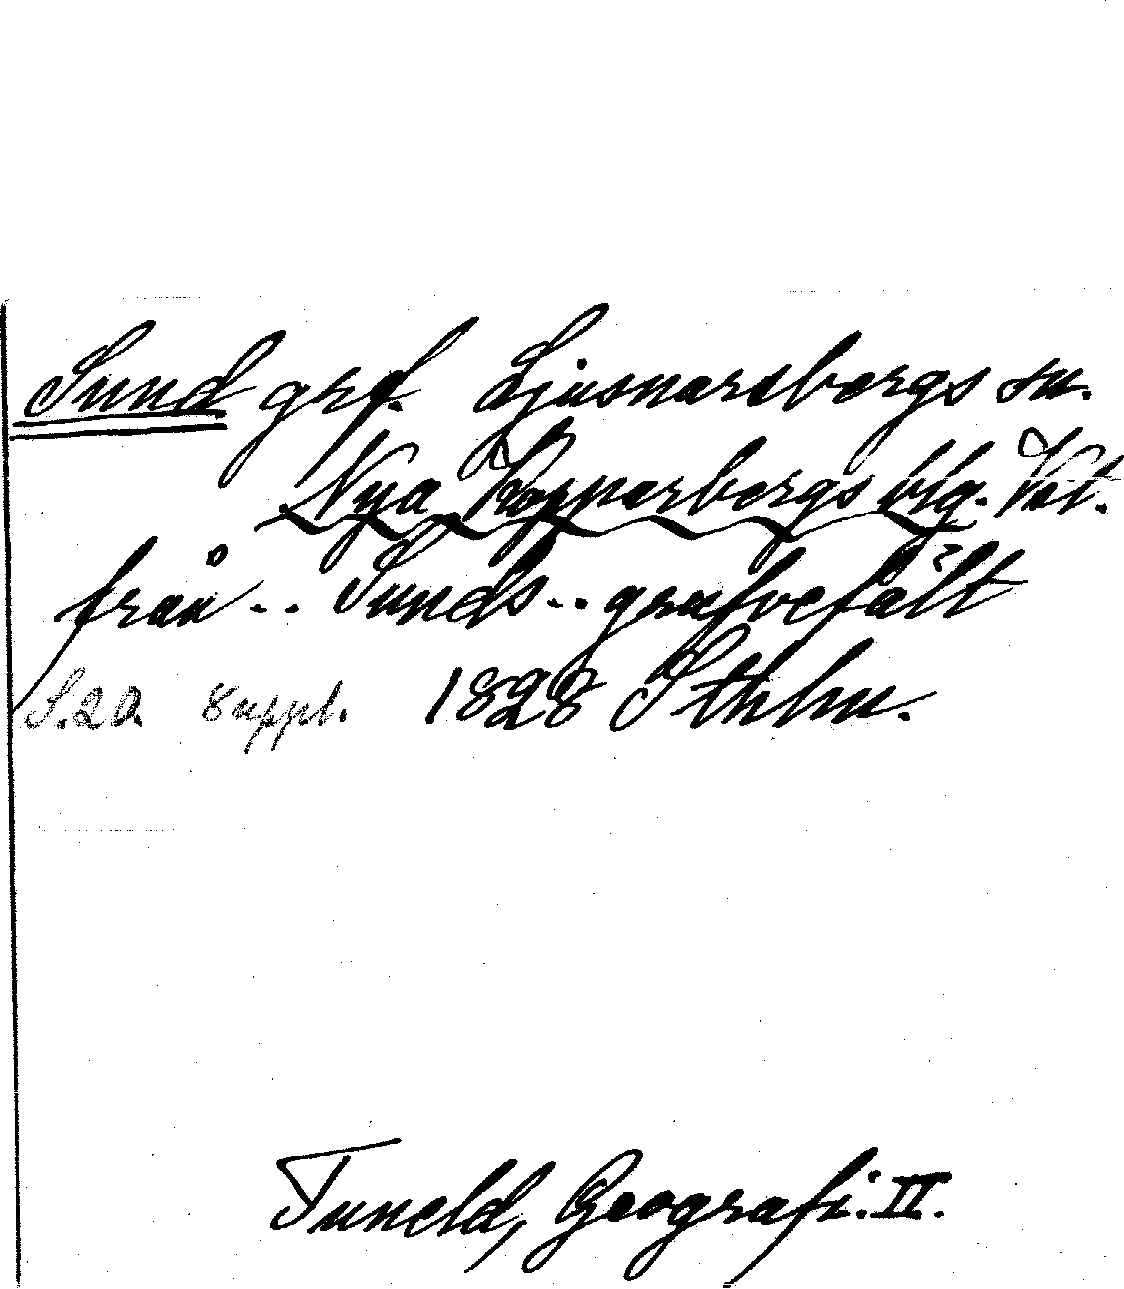 Sund grf. Ljusnarsbergs sn.
Nya Kopparbergs blg. Vst.
från - - Sunds - - grufvefält
S. 20. Suppl. 1828 Sthlm.
Tuneld, Geografi. II.